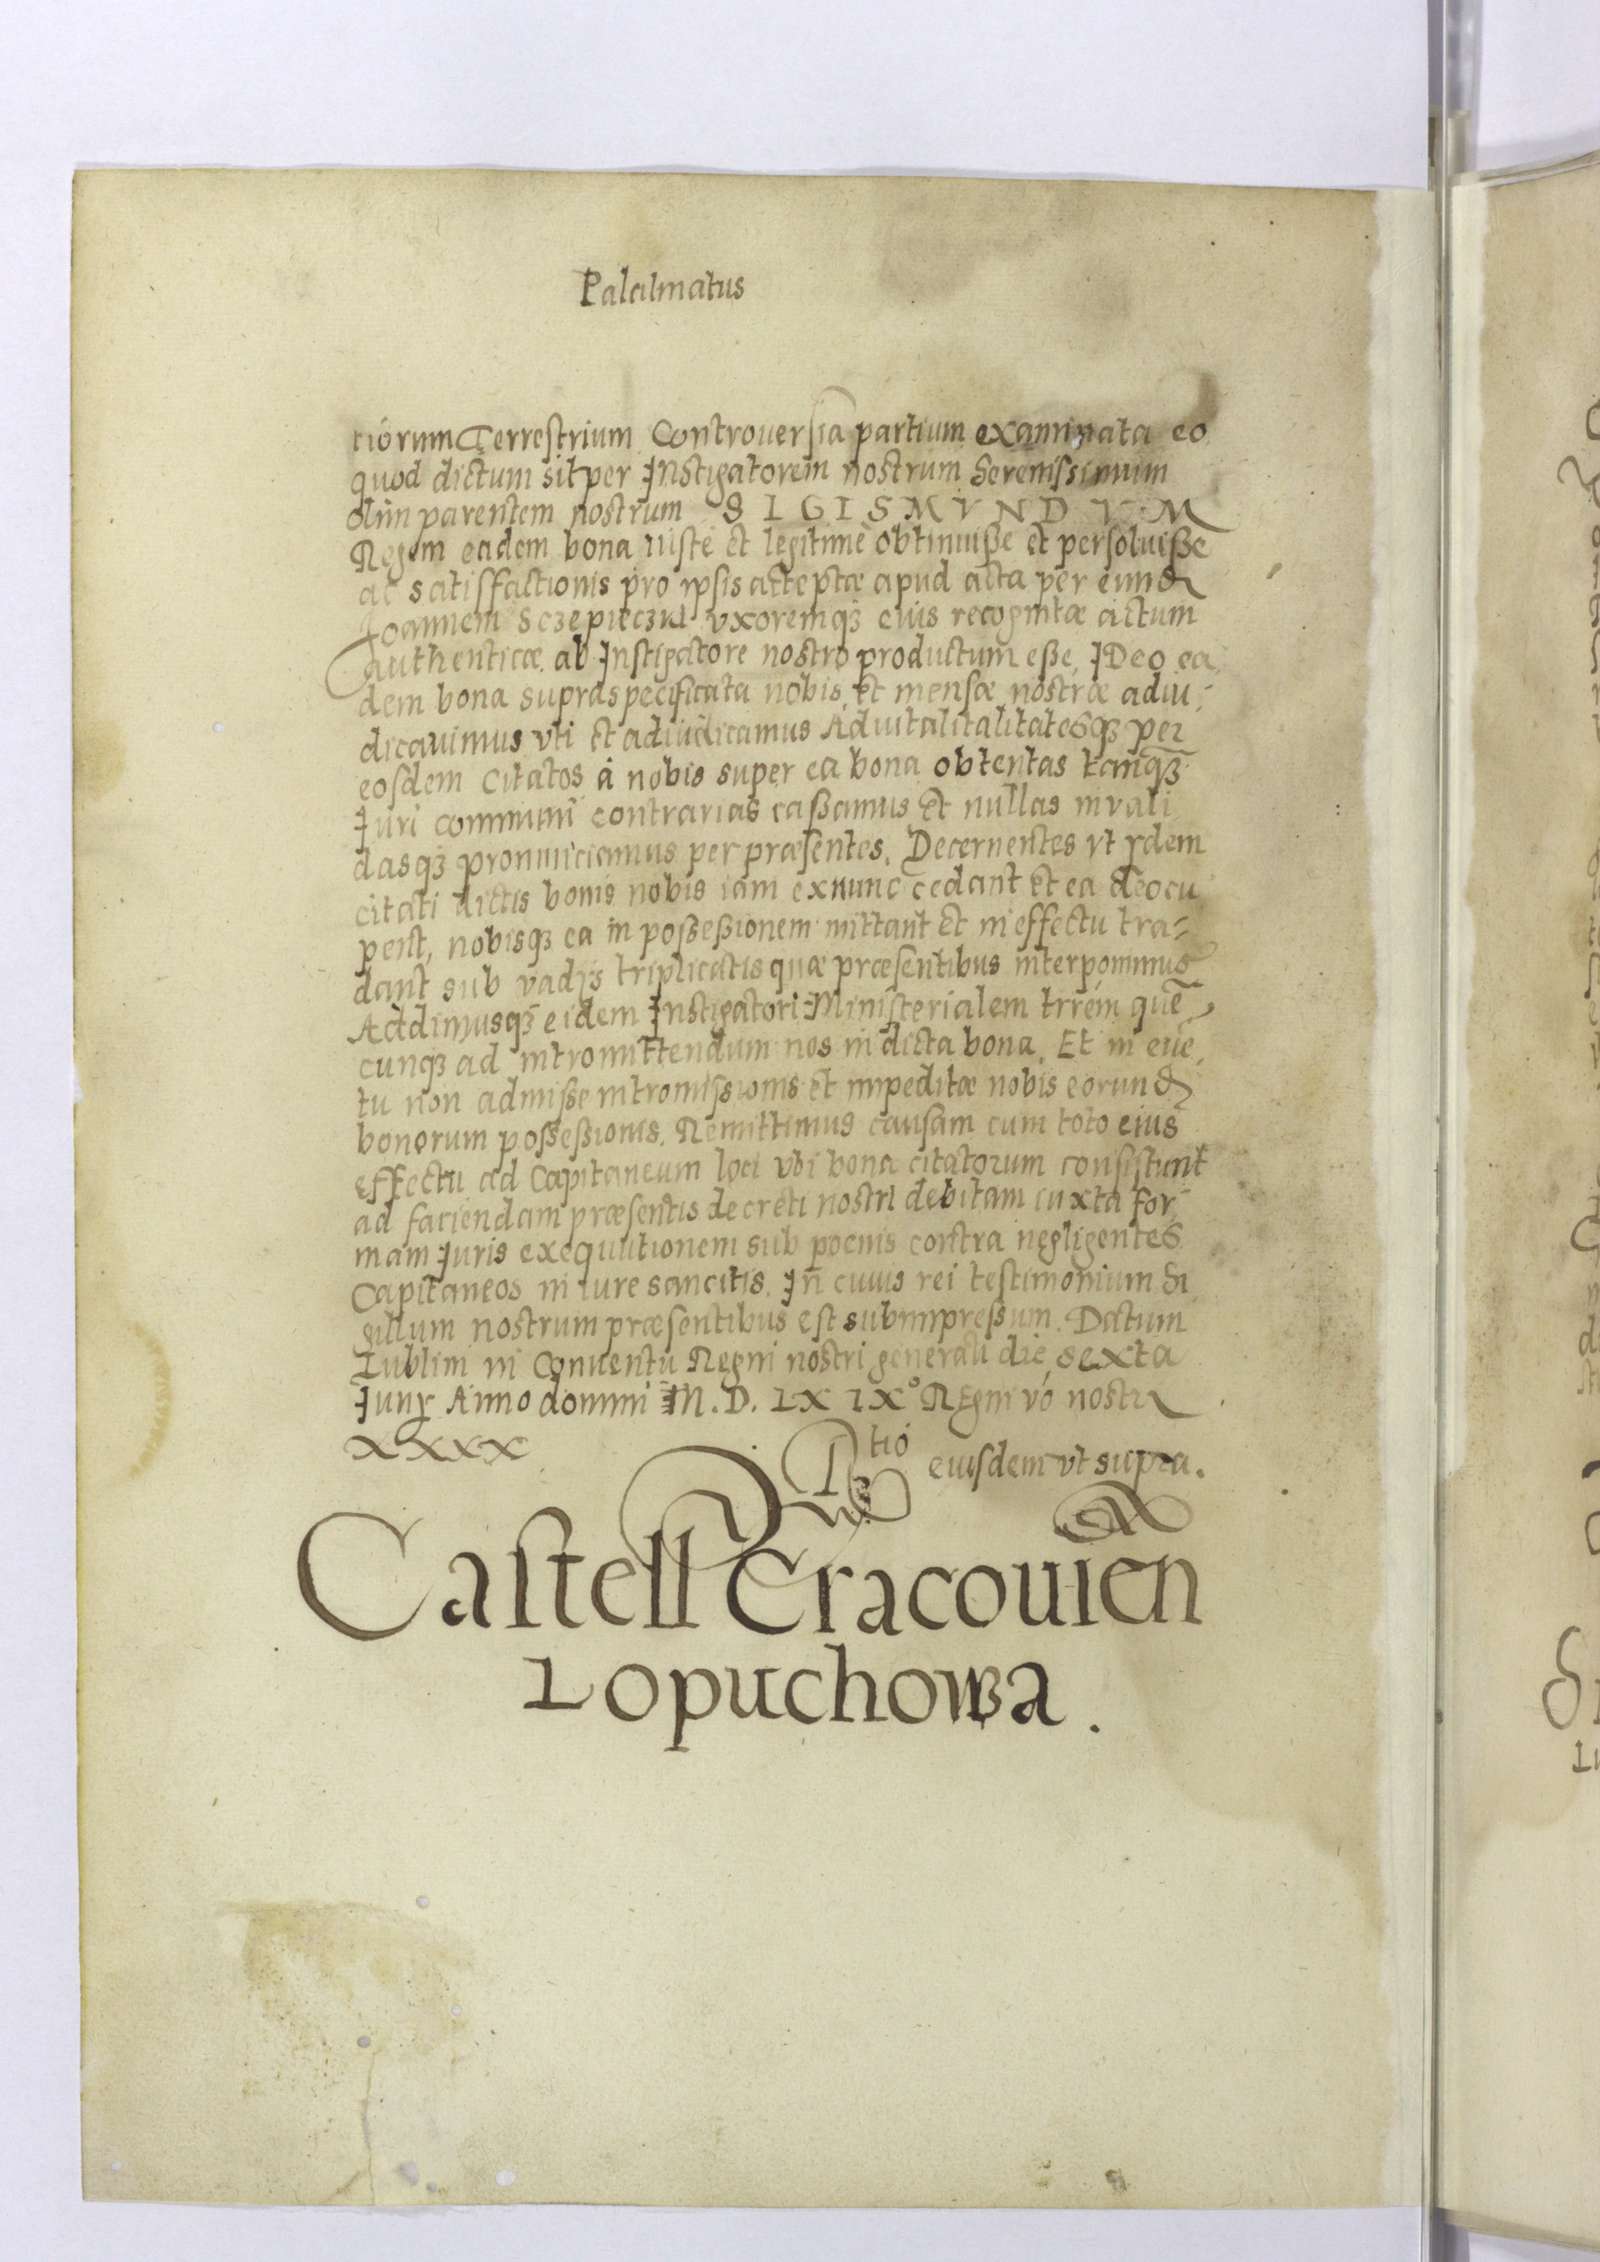 Palalmatus
tiorum Terrestrium Controuersia partium examinata eo
quod dictum sit per Instigatorem nostrum Serenissimum
olim parentem nostrum SIGISMVNDVM
Regem eadem bona iuste et legitime obtinuiße et persoluiße
ac satisfactionis pro ipsis acceptæ apud acta per eund
Ioannem Sczepieczki vxoremqꝫ eius recognitæ actum
authenticæ ab Instigatore nostro productum eße, IDeo ea
dem bona supraspecificata nobis et mensæ nostræ adiu-
dicauimus vti et adiudicamus Aduitalitalitatesqꝫ per
eosdem Citatos à nobis super ea bona obtentas tanqꝫ
Iuri communi contrarias caßamus et nullas inuali
dasqꝫ pronunciamus per præsentes. Decernentes vt ydem
citati dictis bonis nobis iam exnunc cedant et ea deocu
pent, nobisqꝫ ea in poßeßionem mittant et in effectu tra-
dant sub vadijs triplicatis quæ præsentibus interponimus
Addimusqꝫ eidem Instigatori Ministerialem trrem que
cunqꝫ ad intromittendum nos in dicta bona. Et in eue
tu non admisse intromissionis et impeditæ nobis eorund
bonorum poßeßionis. Remittimus causam cum toto eius
effectu ad Capitaneum loci vbi bona citatorum consistunt
ad faciendam præsentis decreti nostri debitam iuxta for
mam Iuris exequutionem sub poenis contra negligentes
Capitaneos in iure sancitis. In cuius rei testimonium Si
gillum nostrum præsentibus est subimpreßum. Datum
Lublini in Conuentu Regni nostri generali die sexta
Iunij Anno domini M.D.LXIX° Regni vo nostri
XXXX
Rtio eiusdem vt supra.
Castell Cracouien
Lopuchowa.